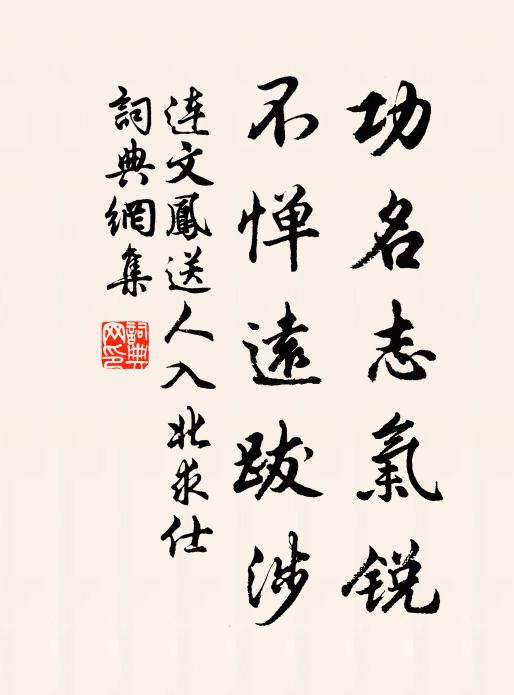 功名志氣锐
不惮遠跋涉
连文鳳送人入北求仕
詞典網集
詞典
网印